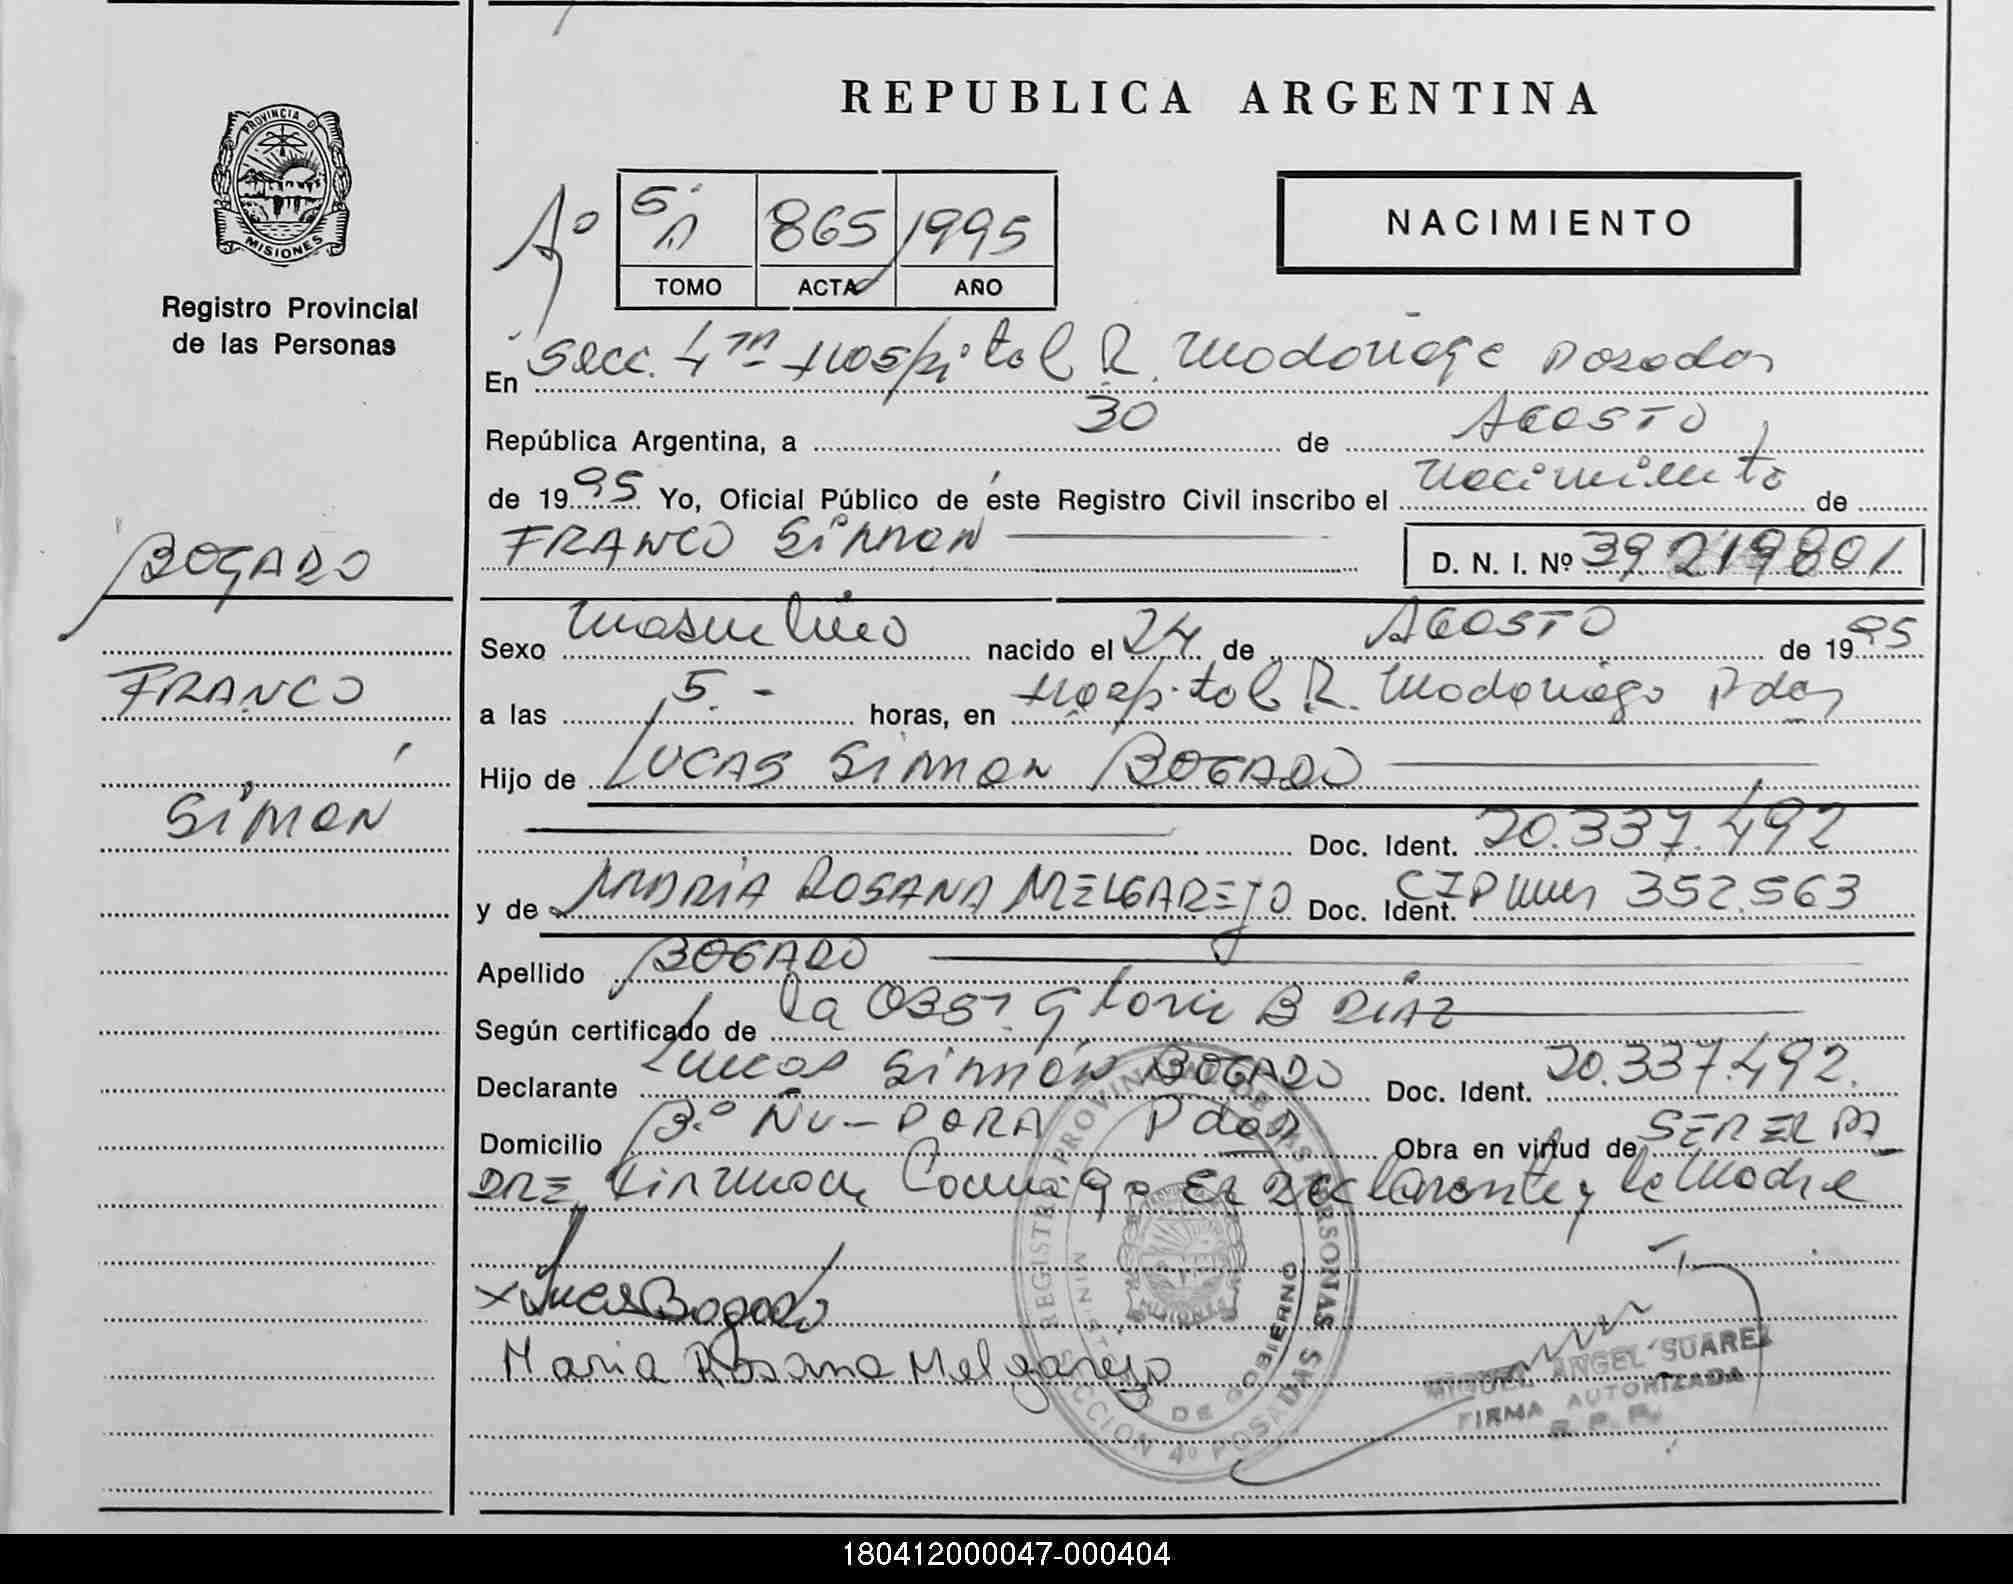 REPUBLICA ARGENTINA
PROVINCIA DE
MISIONES
Registro Provincial
de las Personas
5º 865 1995
TOMO ACTA AÑO
NACIMIENTO
En Secc. 4ta Hospital R. Madariaga Posadas
República Argentina, a 30 de AGOSTO
de 1995 Yo, Oficial Público de éste Registro Civil inscribo el nacimiento de
FRANCO SIMON
D. N. I. Nº 39219801
BOGADO
FRANCO
SIMON
Sexo masculino nacido el 24 de AGOSTO de 1995
a las 5.- horas, en Hospital R. Madariaga Pdas
Hijo de LUCAS SIMON BOGADO
Doc. Ident. 20.337.492
y de MARIA ROSANA MELGAREJO Doc. Ident. CIP 352.563
Apellido BOGADO
Según certificado de la OBST. Gloria B DIAZ
Declarante Lucas SIMON BOGADO Doc. Ident. 20.337.492.
Domicilio Bº ÑU-PORA Pdas Obra en virtud de SER EL PA
DRE Firman Conmigo El Declarante y la Madre
x Lucas Bogado
Maria Rosana Melgarejo
REGISTRO PROVINCIAL DE LAS PERSONAS
MINISTERIO DE GOBIERNO
MISIONES
SECCION 4º POSADAS
MIGUEL ANGEL SUAREZ
FIRMA AUTORIZADA
R. P. P.
180412000047-000404